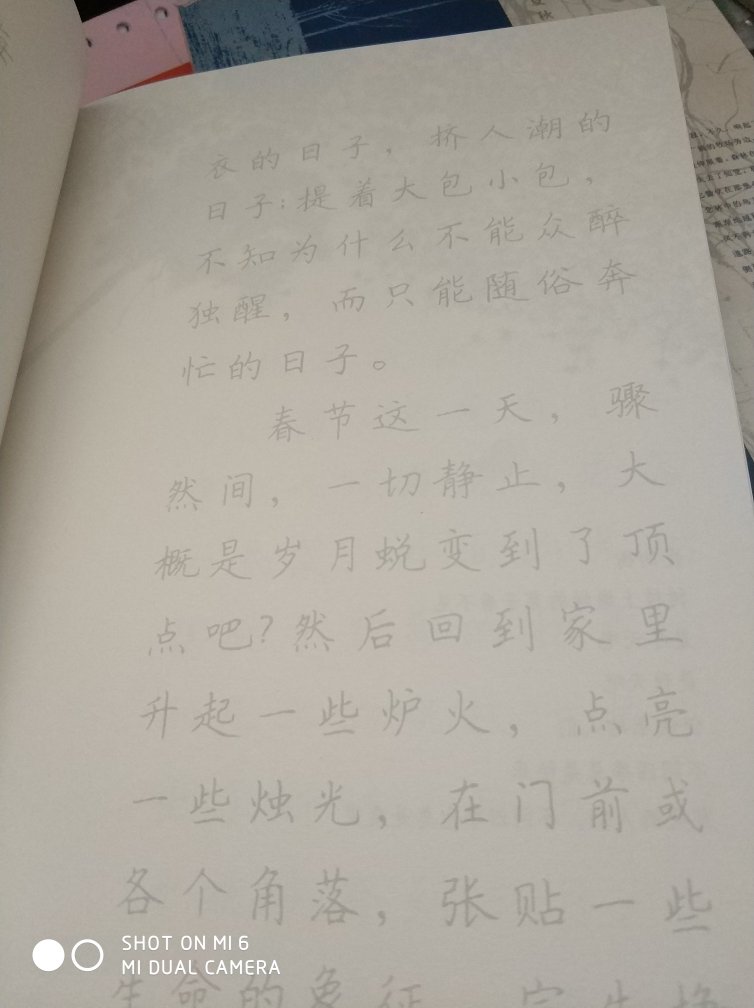 衣的日子，挤人潮的
日子；提着大包小包，
不知为什么不能众醉
独醒，而只能随俗奔
忙的日子。
春节这一天，骤
然间，一切静止，大
概是岁月蜕变到了顶
点吧？然后回到家里
升起一些炉火，点亮
一些烛光，在门前或
各个角落，张贴一些
生命的象征，
SHOT ON MI 6
MI DUAL CAMERA